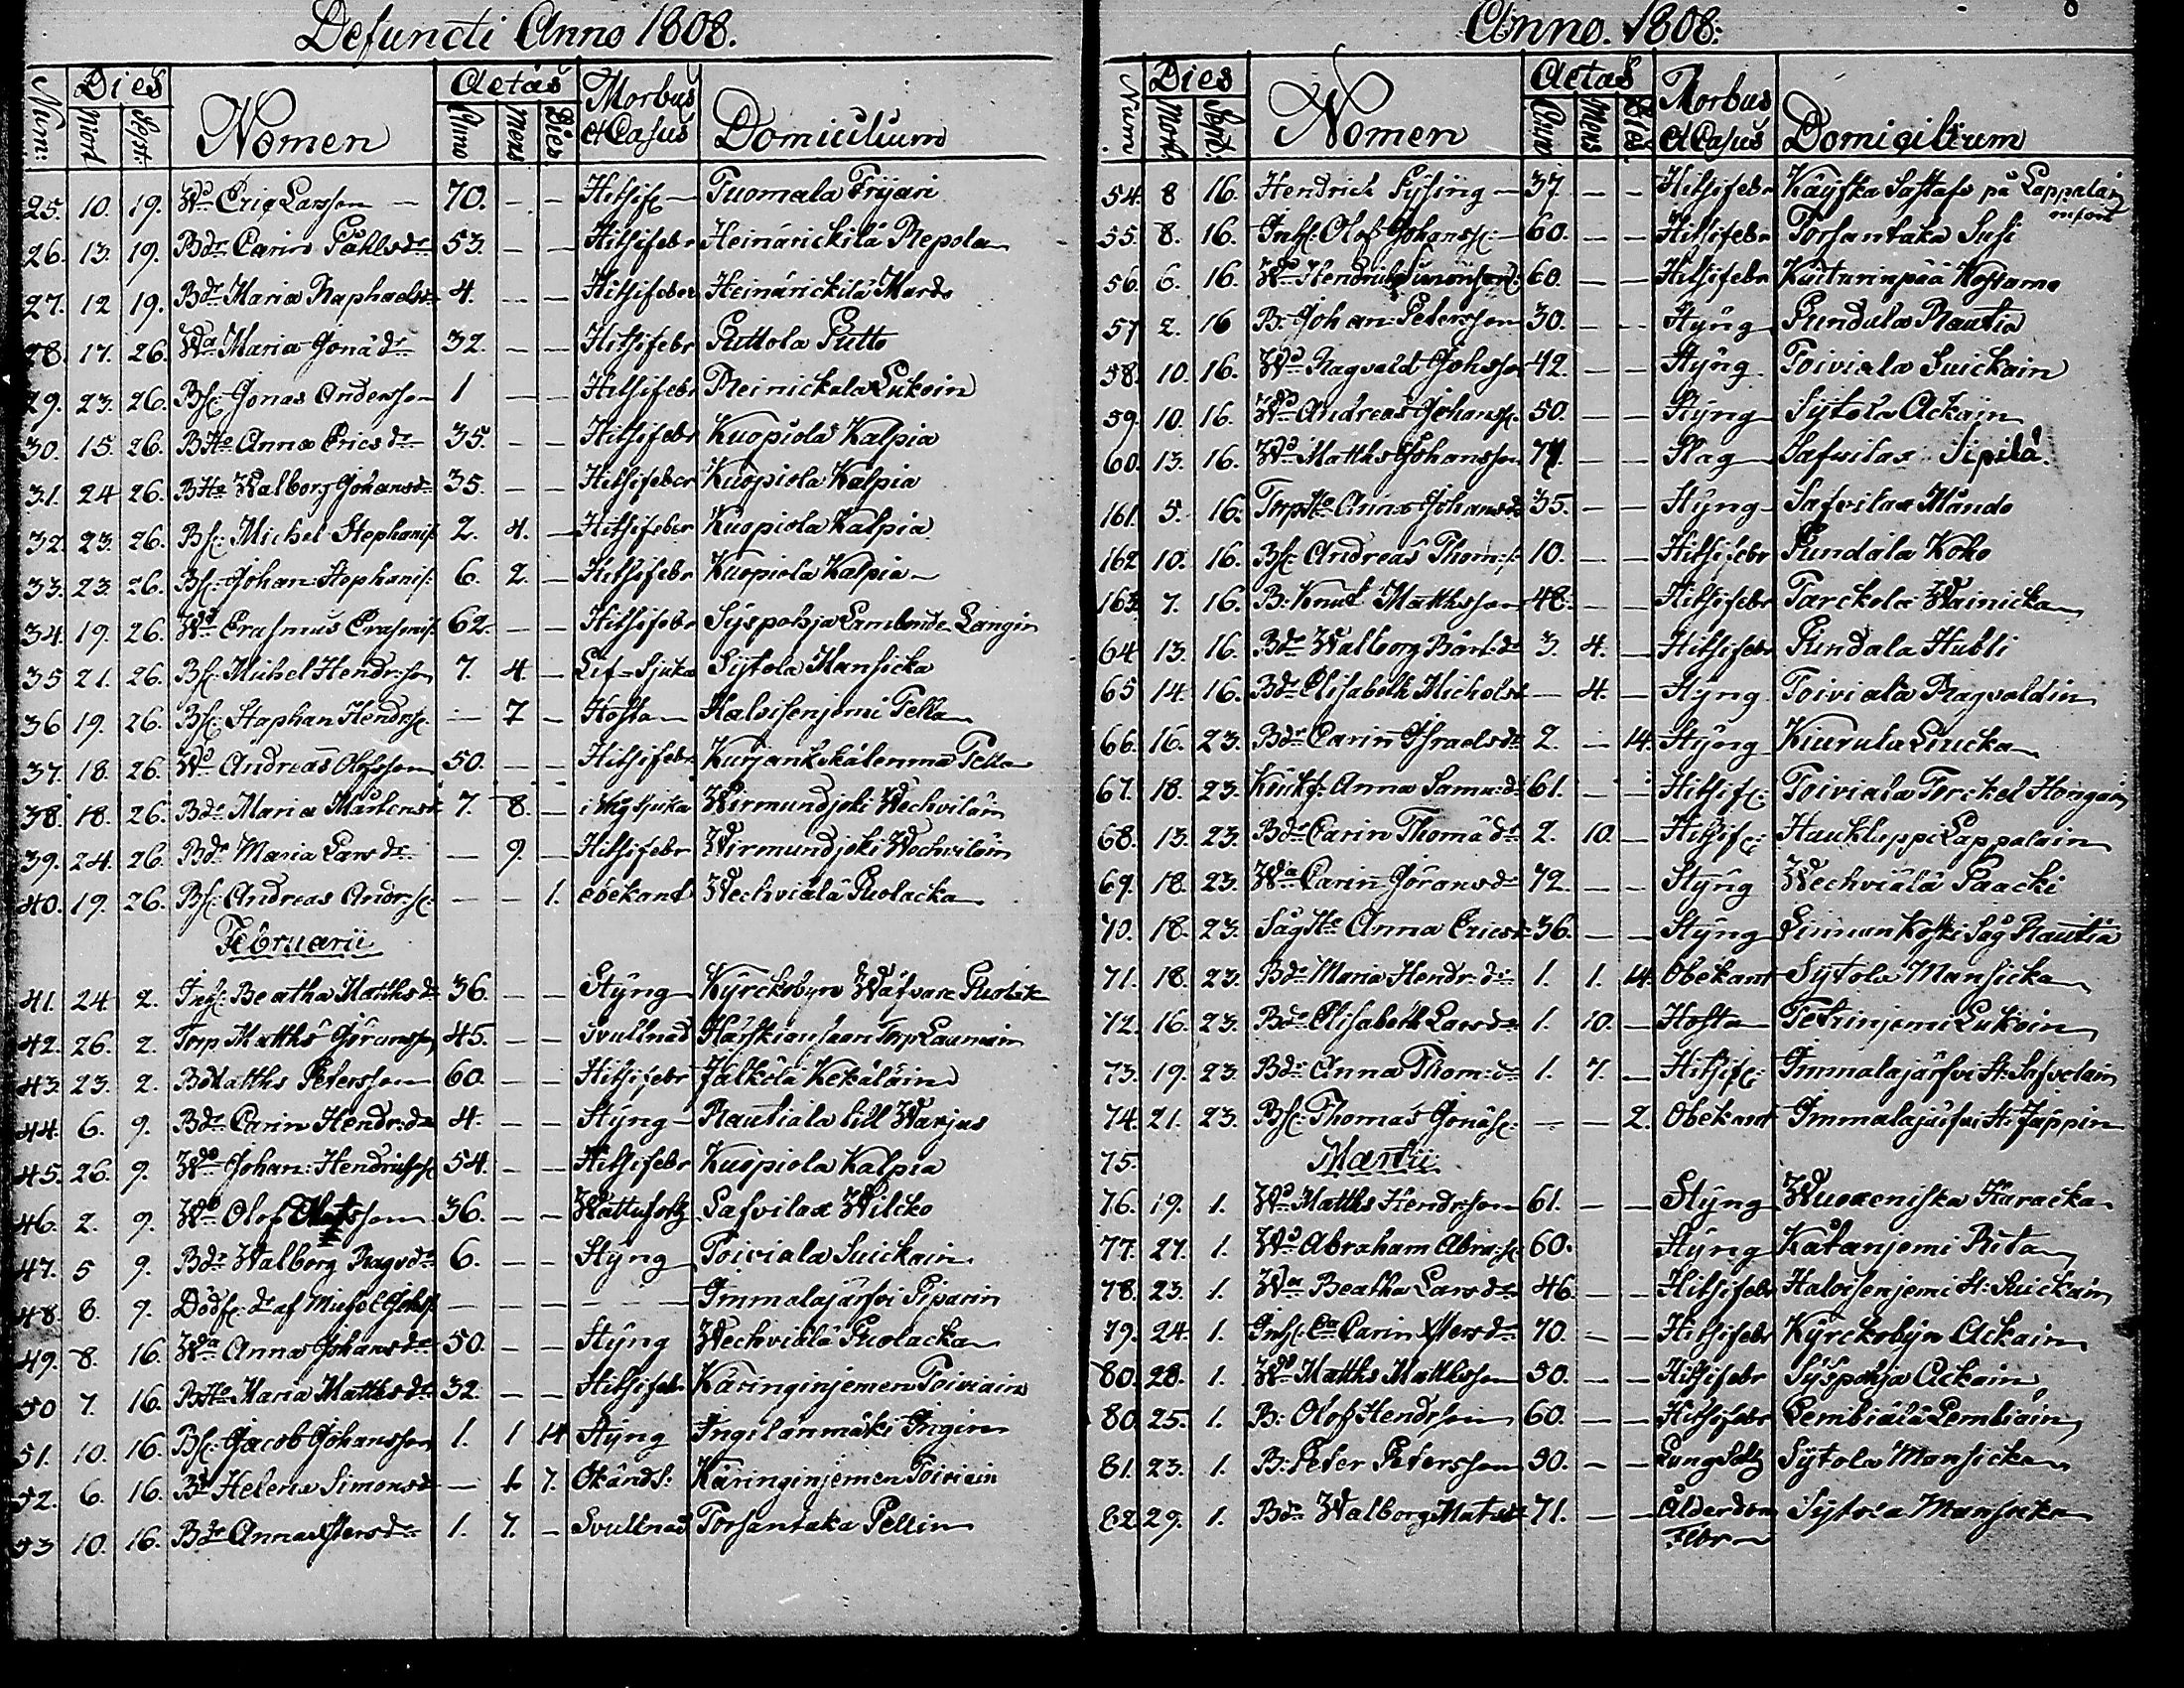 Defuncti Anno 1808.
Num: Dies Mort. Sept: Nomen Aetas Anno Mens Dies Morbus et Casus Domicilium
25. 10. 19. Wd Eric Larsson — 70. - - Hitsif — Tuomala Tryari
26. 13. 19. Bdr Carin Påhlsdr 53. - - Hitsifebr Heinärickilä Repola
27. 12 19. Bdr Maria Raphaelsdr 4. - - Hitsifeber Heinärickilä Mardo
28. 17. 26. Wa Maria Jonädr 32. - - Hitsifebr Puttola Putto
29. 23. 26. Bs: Jonas Andersson 1 - - Hitsifebr Reinickala Lukoin
30. 15. 26. BHu Anna Ericsdr 35. - - Hitsifebr Kuopiola Kalpia
31. 24 26. BHu Walborg Johansdr 35. - - Hitsifeber Kuopiola Kalpia
32. 23. 26. Bs: Michel Stephans: 2. 4. - Hitsifeber Kuopiola Kalpia
33. 23 26. Bs: Johan Stephans: 6. 2. - Hitsifebr Kuopiola Kalpia
34. 19. 26. Wd Erasmus Erasmis: 62. - - Hitsifebr Syspohja Langin
35 21. 26. Bs: Michel Hendrson 7. 4. - Lif-Sjuka Sytola Mansicka
36 19. 26. Bs: Staphan Hendrs: — 7 - Hosta Halvisenjemi Pella
37. 18. 26. Wd Andreas Olofsson 50. - - Hitsifebr Pella
38. 18. 26. Bdr Maria Mårtensdr 7. 8. - Wirmundjoki Wechviläin
39. 24. 26. Bdr Maria Larsdr — 9. - Hitsifebr Wirmundjoki Wechviläin
40. 19. 26. Bs: Andreas Andrs: — — 1. obekant Wechviälä Puolacka
Februarii
41. 24 2. Inhs: Beatha Matthsdr 36. - - Styng Kyrckobyn Wäfvare
42. 26. 2. Torp Matths Göransson 45. - - Svullnad Torp Laumain
43. 23. 2. B Matths Petersson 60. - - Hitsifebr Jälkölä Kekäläin
44. 6. 9. Bdr Carin Hendr:dr 4. - - Styng Rautiala lill Warjus
45. 26. 9. Wd Johan: Hendrichss: 54. - - Hitsifebr Kuopiola Kalpia
46. 2. 9. Wd Olof Olofsson 36. - - Wattusotg Safvilax Wilcko
47. 5 9. Bdr Walborg Ragvdr 6. - - Styng Toiviala Suickain
48. 8. 9. Dödf: dr af Michel — — — — Immalajärfvi Piparin
49. 8. 16. Wa Anna Johansdr 50. - - Styng Wechviälä Puolacka
50 7. 16. BHu Maria Matthsdr 32. - - Hitsifebr Käringinjemen Toiviain
51. 10. 16. Bs: Jacob Johansson 1. 1 14 Styng Ingilänmäki Ingin
52. 6. 16. Bdr Helena Simonsdr — 1 7. Okändt: Käringinjemen Toiviain
53 10. 16. Bdr Anna Petersdr 1. 7. - Svullnad Torsantaka Pellin
Anno. 1808:
Num. Dies Mort. Sept: Nomen Aetas Ann Mens Dies Morbus et Casus Domicilium
54. 8 16. Hendrich Sysing — 37 - - Hitsifebr på Lappalain
55. 8. 16. Inhs: Olof Johanss: 60. - - Hitsifebr Torsantaka Susi
56. 6. 16. Wd Hendrich Simonson: 60. - - Hitsifebr Kuiturinpää Kostamo
57 2. 16 B: Johan: Petersson 30. - - Styng Pundala Rautia
58. 10. 16. Wd Ragvald Johsson 42. - - Styng Toiviala Suickain
59. 10. 16. Wd Andreas Johanss: 50. - - Styng Sytola Ackain
60. 13. 16. Wd Matths Johansson 77. - - Slag Safvilax Sipilä.
161. 5. 16. TorpHu Anna Johansdr 35. - - Styng Safvilax Mando
162 10. 16. Bs: Andreas Thom:s: 10. - - Hitsifebr Pundala Koho
163 7. 16. B: Knut Matthsson 48. - - Hitsifebr Tarckola Wainicka
64 13. 16. Bdr Walborg Bärl:dr 3. 4. - Hitsifebr Pundala Hubli
65 14. 16. Bdr Elisabeth Michelsdr — 4. - Styng Toiviala Ragvaldin
66. 16. 23. Bdr Carin Israelsdr 2. - 14. Styng Kuurula Liucka
67. 18. 23. Anna Samu:dr 61. - - Hitsif: Toiviala Torckel Hongain
68. 13. 23. Bdr Carin Thomädr 2. 10. - Hitsif: Haukluppi Lappalain
69. 18. 23. Wa Carin Göransdr 72 - - Styng Wechviälä Paacki
70. 18. 23. SågHu Anna Ericsdr 36. - - Styng Linnunkoski Såg Rautia
71. 18. 23. Bdr Maria Hendr:dr 1. 1. 14. Obekant Sytola Mansicka
72. 16. 23. Bdr Elisabeth Larsdr 1. 10. - Hosta Tetrinjemi Lukoin
73. 19. 23. Bdr Anna Thom:dr 1. 7. - Hitsif: Immalajärfvi St. Safvolain
74. 21. 23. Bs: Thomas Jonäs: — — 2. Obekant Immalajärfvi St. Jäppin
75. Martii
76. 19. 1. Wd Matths Hendrson 61. - - Styng Wuoxeniska Karacka
77. 27. 1. Wd Abraham Abra:s: 60. Styng Kåtanjemi Rita
78. 23. 1. Wa Beatha Larsdr 46. - - Hitsifebr Halvisenjemi St: Suickain
79. 24. 1. Inhs: Ea Carin Petersdr 70. - - Hitsifebr Kyrckobyn Ackain
80. 28. 1. Wd Matths Matthsson 50. - - Hitsifebr Syspohja Ackain
80. 25. 1. B: Olof Hendrson 60. - - Hitsifebr Lembiälä Lembiäin
81. 23. 1. B: Peter Petersson 50. - - Lungsotg Sytola Mansicka
82. 29. 1. Bdr Walborg Matsdr 71. - - Ålderdom Sytola Mansicka
Febr